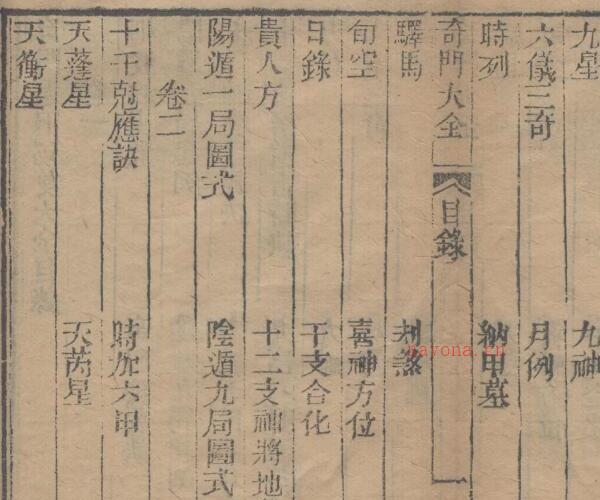 九星　九神
六儀三奇　月例
時列　納甲墓
奇門大全　目錄　一
驛馬　煞
旬空　喜神方位
日錄　干支合化
貴人方　十二支神將地
陽遁一局圖式　陰遁九局圖式
卷二
十干尅應訣　時加六甲
天蓬星　天芮星
天衝星
nayona.cn